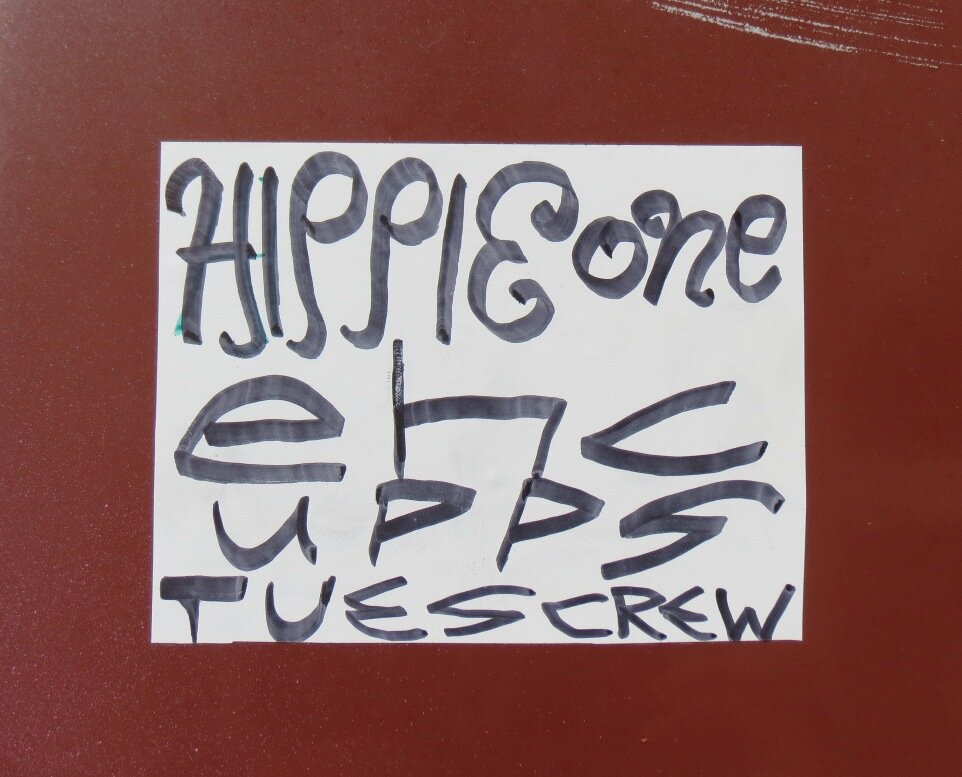 HIPPIE one
ehc
upps
TUES CREW